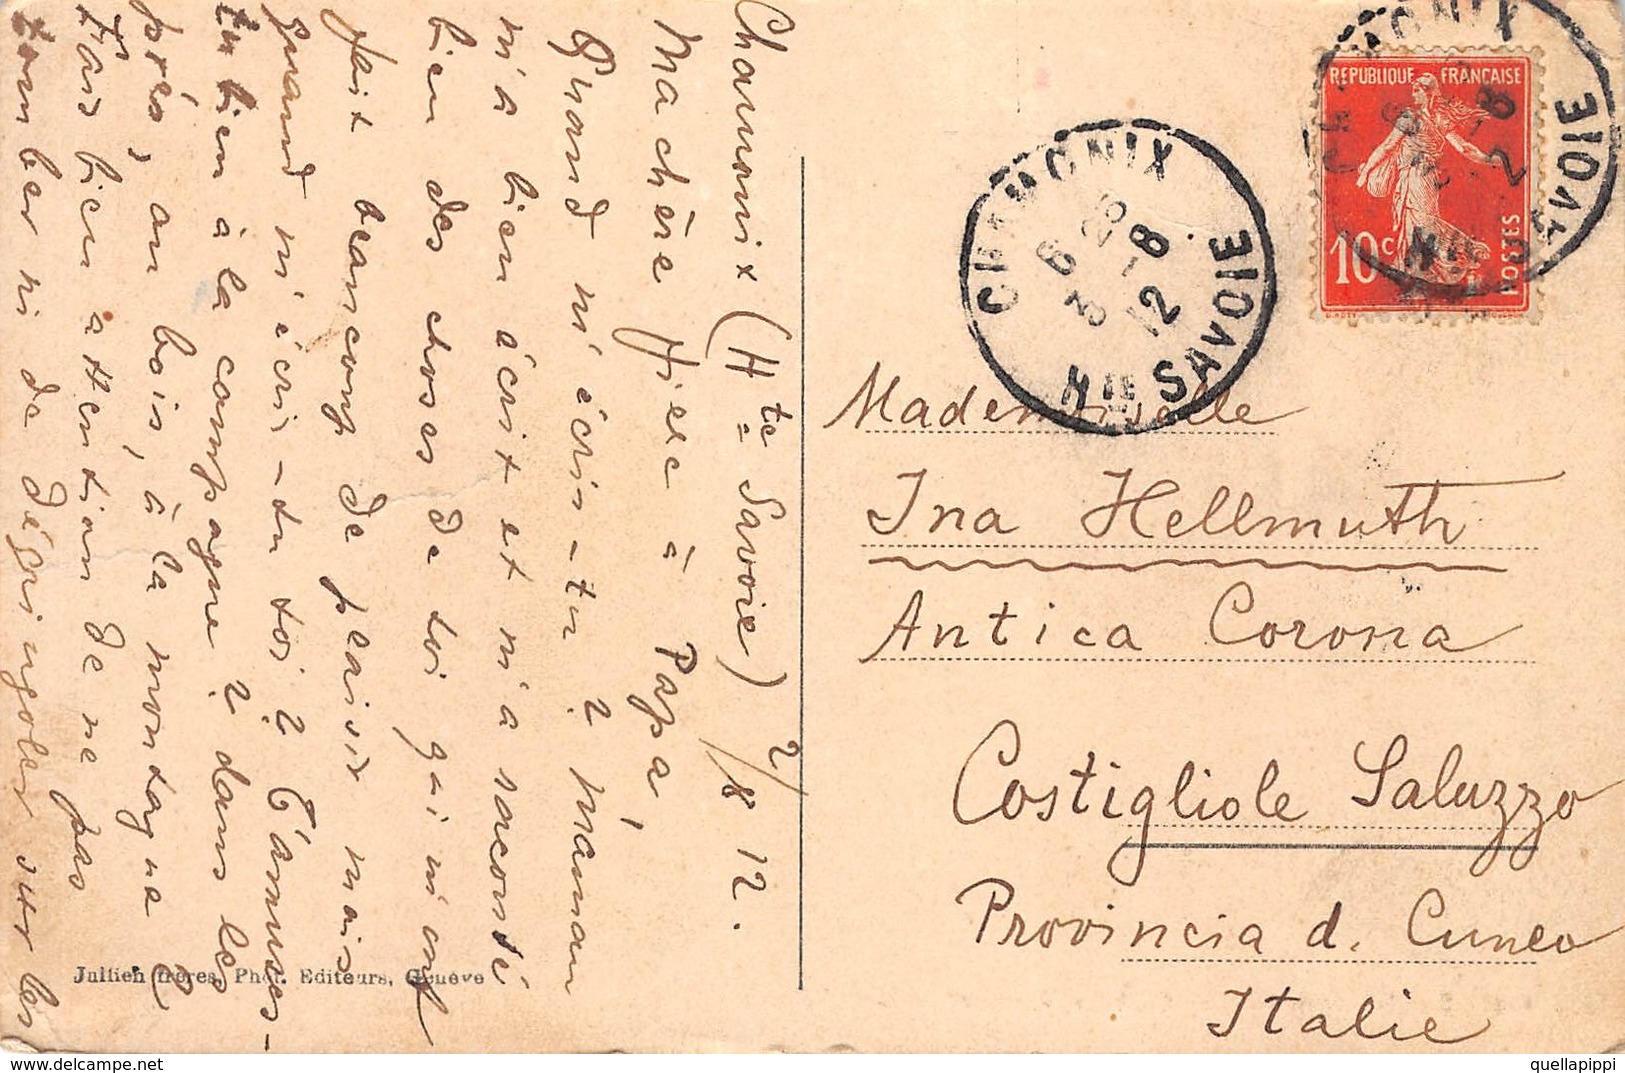 Chamonix (Hte Savoie) 2/8 12.
Ma chère fille à Papa,
Quand m'écris-tu? Maman
m'a bien écrit et m'a raconté
bien des choses de toi qui m'ont
fait beaucoup de plaisir mais
quand m'écris-tu toi? T'amuses-
tu bien à la campagne? dans les
près, au bois, à la montagne?
Fais bien attention de ne pas
tomber ni de dégringoler sur les
Jullien frères, Phot. Editeurs, Genève
CHAMONIX
6 25
3 -8
12
Hte SAVOIE
REPUBLIQUE FRANÇAISE
10 c
POSTES
CHAMONIX
Hte SAVOIE
Mademoiselle
Ina Hellmuth
Antica Corona
Costigliole Saluzzo
Provincia d. Cuneo
Italie
www.delcampe.net
quellapippi